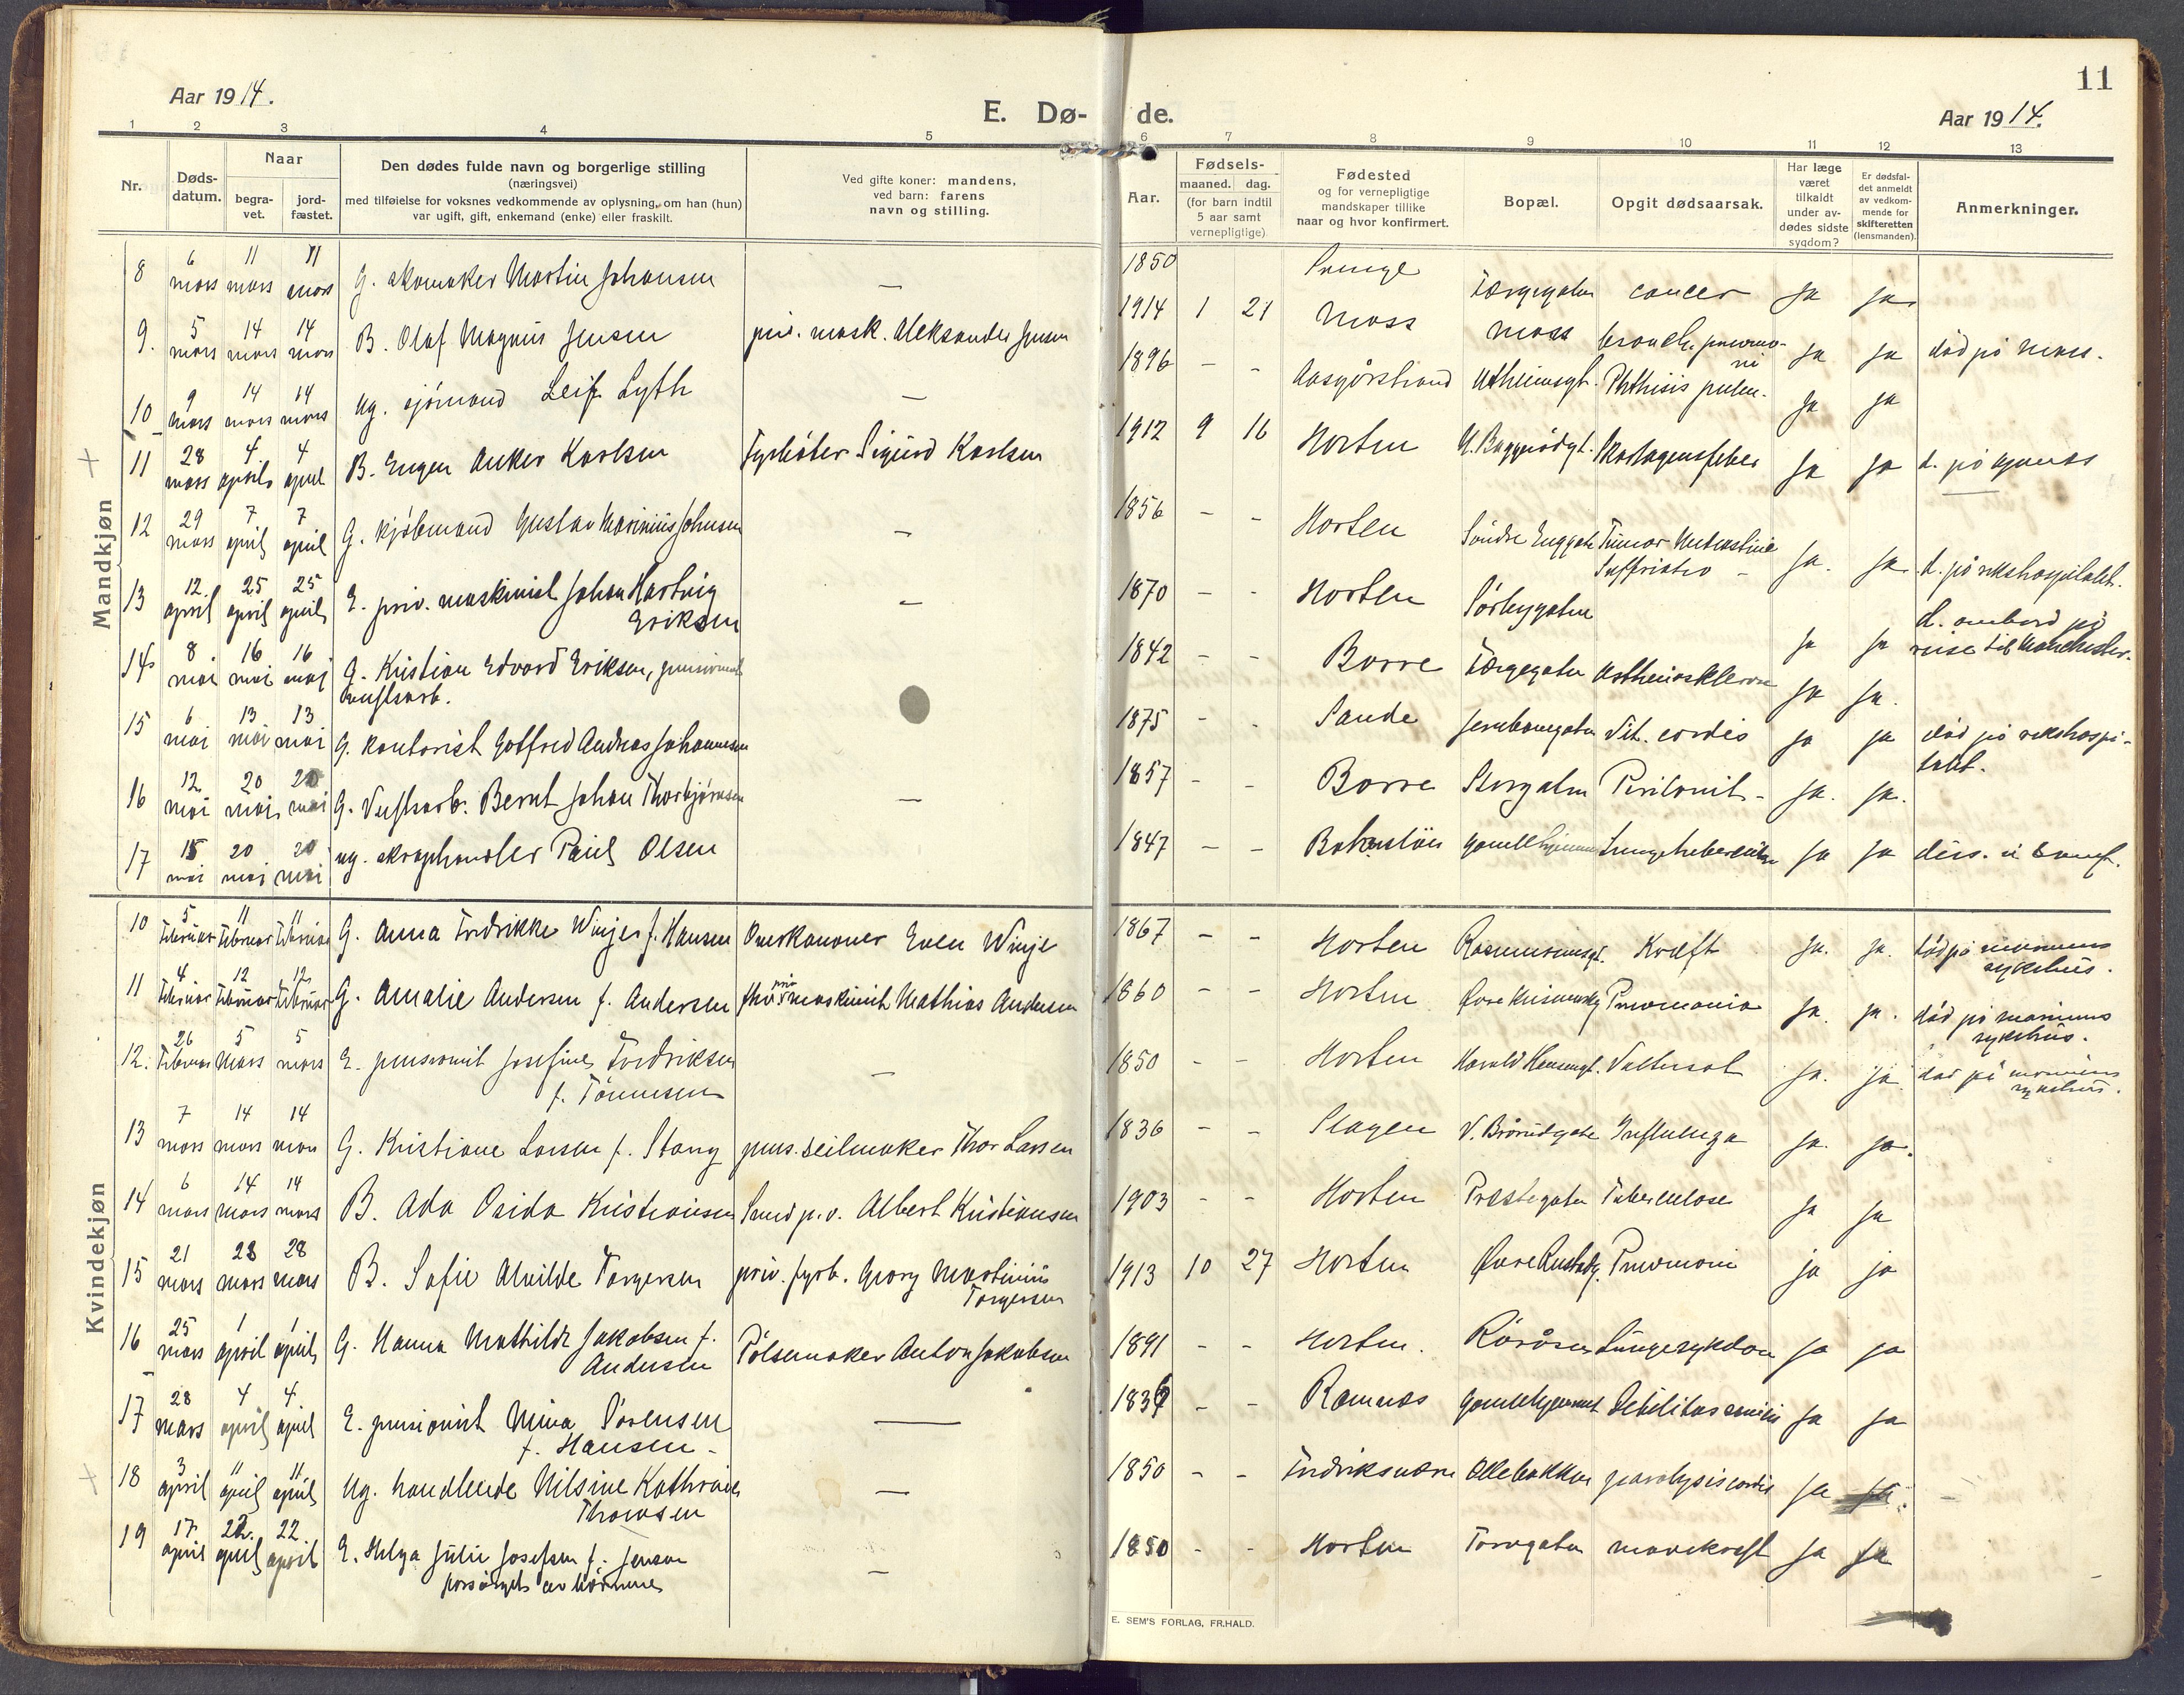 11
Aar 1914.
E. Dø- de.
Aar 1914.
1 2 3 4 5 6 7 8 9 10 11 12 13
Nr.
Døds-
datum.
Naar
begra-
vet.
jord-
fæstet.
Den dødes fulde navn og borgerlige stilling
(næringsvei)
med tilføielse for voksnes vedkommende av oplysning, om han (hun)
var ugift, gift, enkemand (enke) eller fraskilt.
Ved gifte koner: mandens,
ved barn: farens
navn og stilling.
Aar.
Fødsels-
maaned. dag.
(for barn indtil
5 aar samt
vernepligtige)
Fødested
og for vernepligtige
mandskaper tillike
naar og hvor konfirmert.
Bopæl.
Opgit dødsaarsak.
Har læge
været
tilkaldt
under av-
dødes sidste
sygdom?
Er dødsfal-
det anmeldt
av vedkom-
mende for
skifteretten
(lensmanden).
Anmerkninger.
Mandkjøn
8 6 mars 11 mars 11 mars G. skomaker Martin Johansen — 1850 cancer ja ja
9. 5 mars 14 mars 14 mars B. Olaf Magnus Jensen priv. mask. Aleksander Jensen 1914 1 21 Moss Moss bronch. pneumo-
ni ja ja død på Moss.
10 9 mars 14 mars 14 mars Ug. sjømand Leif Lyth — 1896 - - Aasgårstrand Phthisis pulm. ja ja
11 28 mars 4 april 4 april B. Eugen Anker Karlsen Fyrbøter Sigurd Karlsen 1912 9 16 Horten Skarlagensfeber ja ja
12 29 mars 7 april 7 april G. kjøbmand Gustav Marinius Johnsen — 1856 - - Horten Søndre Enggate Tumor ja. ja. d. på rikshospitalet.
13 12. april 25 april 25 april E. priv. maskinist Johan Hartvig
Eriksen — 1870 - - Horten Sørbygaten ja ja d. ombord på
reise til Manchester.
14 8 mai 16 mai 16 mai G. Kristian Edvard Eriksen, pensionert
verftsarb. 1842 - - Borre Færgegaten ja ja.
15 6 mai 13 mai 13 mai G. kontorist Gotfred Andreas Johannesen 1875 - - Sande Jernbanegaten Vit. cordis ja ja død på rikshospi-
talet.
16 12 mai 20 mai 20 mai G. Verftsarb. Bernt Johan Thorbjørnsen — 1857 - - Borre Storgaten Peritonit- ja. ja.
17 15 mai 20 mai 20 mai ug. skraphandler Paul Olsen 1847 - - Gamlehjemmet Lungetuberkulose ja ja
Kvindekjøn
10 5 Februar 11 Februar 11 Februar G. Anna Fredrikke Winje f. Hansen Overkanoner Even Winje 1867 - - Horten Kræft ja. ja. død på marinens
sykehus.
11 4 Februar 12 Februar 12 Februar G. Amalie Andersen f. Andersen maskinist Mathias Andersen 1860 - - Horten Pneumonia ja. ja. død på marinens
sykehus.
12. 26 Februar 5 Mars 5 mars E. pensionist Josefine Fredriksen
f. Tønnesen — 1850 - - Horten Harald Hansengt. Vattersot ja. ja. død på marinens
sykehus.
13 7 mars 14 mars 14 mars G. Kristiane Larsen f. Stang pens. seilmaker Thor Larsen 1836 - - Slagen Influenza ja. ja.
14 6 mars 14 mars 14 mars B. Ada Osida Kristiansen Smed p.v. Albert Kristiansen 1903 - - Horten Præstegaten Tuberkulose ja ja
15 21 mars 28 mars 28 mars B. Sofie Alvilde Torgersen priv. fyrb. Georg Martinius
Torgersen 1913 10 27 Horten Pneumoni ja ja
16 25 mars 1 april 1 april G. Hanna Mathilde Jakobsen f.
Andersen Pølsemaker Anton Jakobsen 1891 - - Horten. Røråsen Lungesykdom ja ja
17 28 mars 4 april 4 april E. pensionist Mina Sørensen
f. Hansen- — - - Ramnæs Gamlehjemmet Debilitas senilis ja ja
18 3 april 11 april 11 april Ug. handlende Nilsine Kathrine
Thomsen — 1850 - - Fredriksværn Ollebakken paralysis cordis ja ja. -
19 17 april 22. april 22 april E. Helga Julie Josefsen f. Jensen
forsørget av børnene — 1850 - - Horten Torvgaten mavekræft ja ja
E. SEM'S FORLAG, FR.HALD.